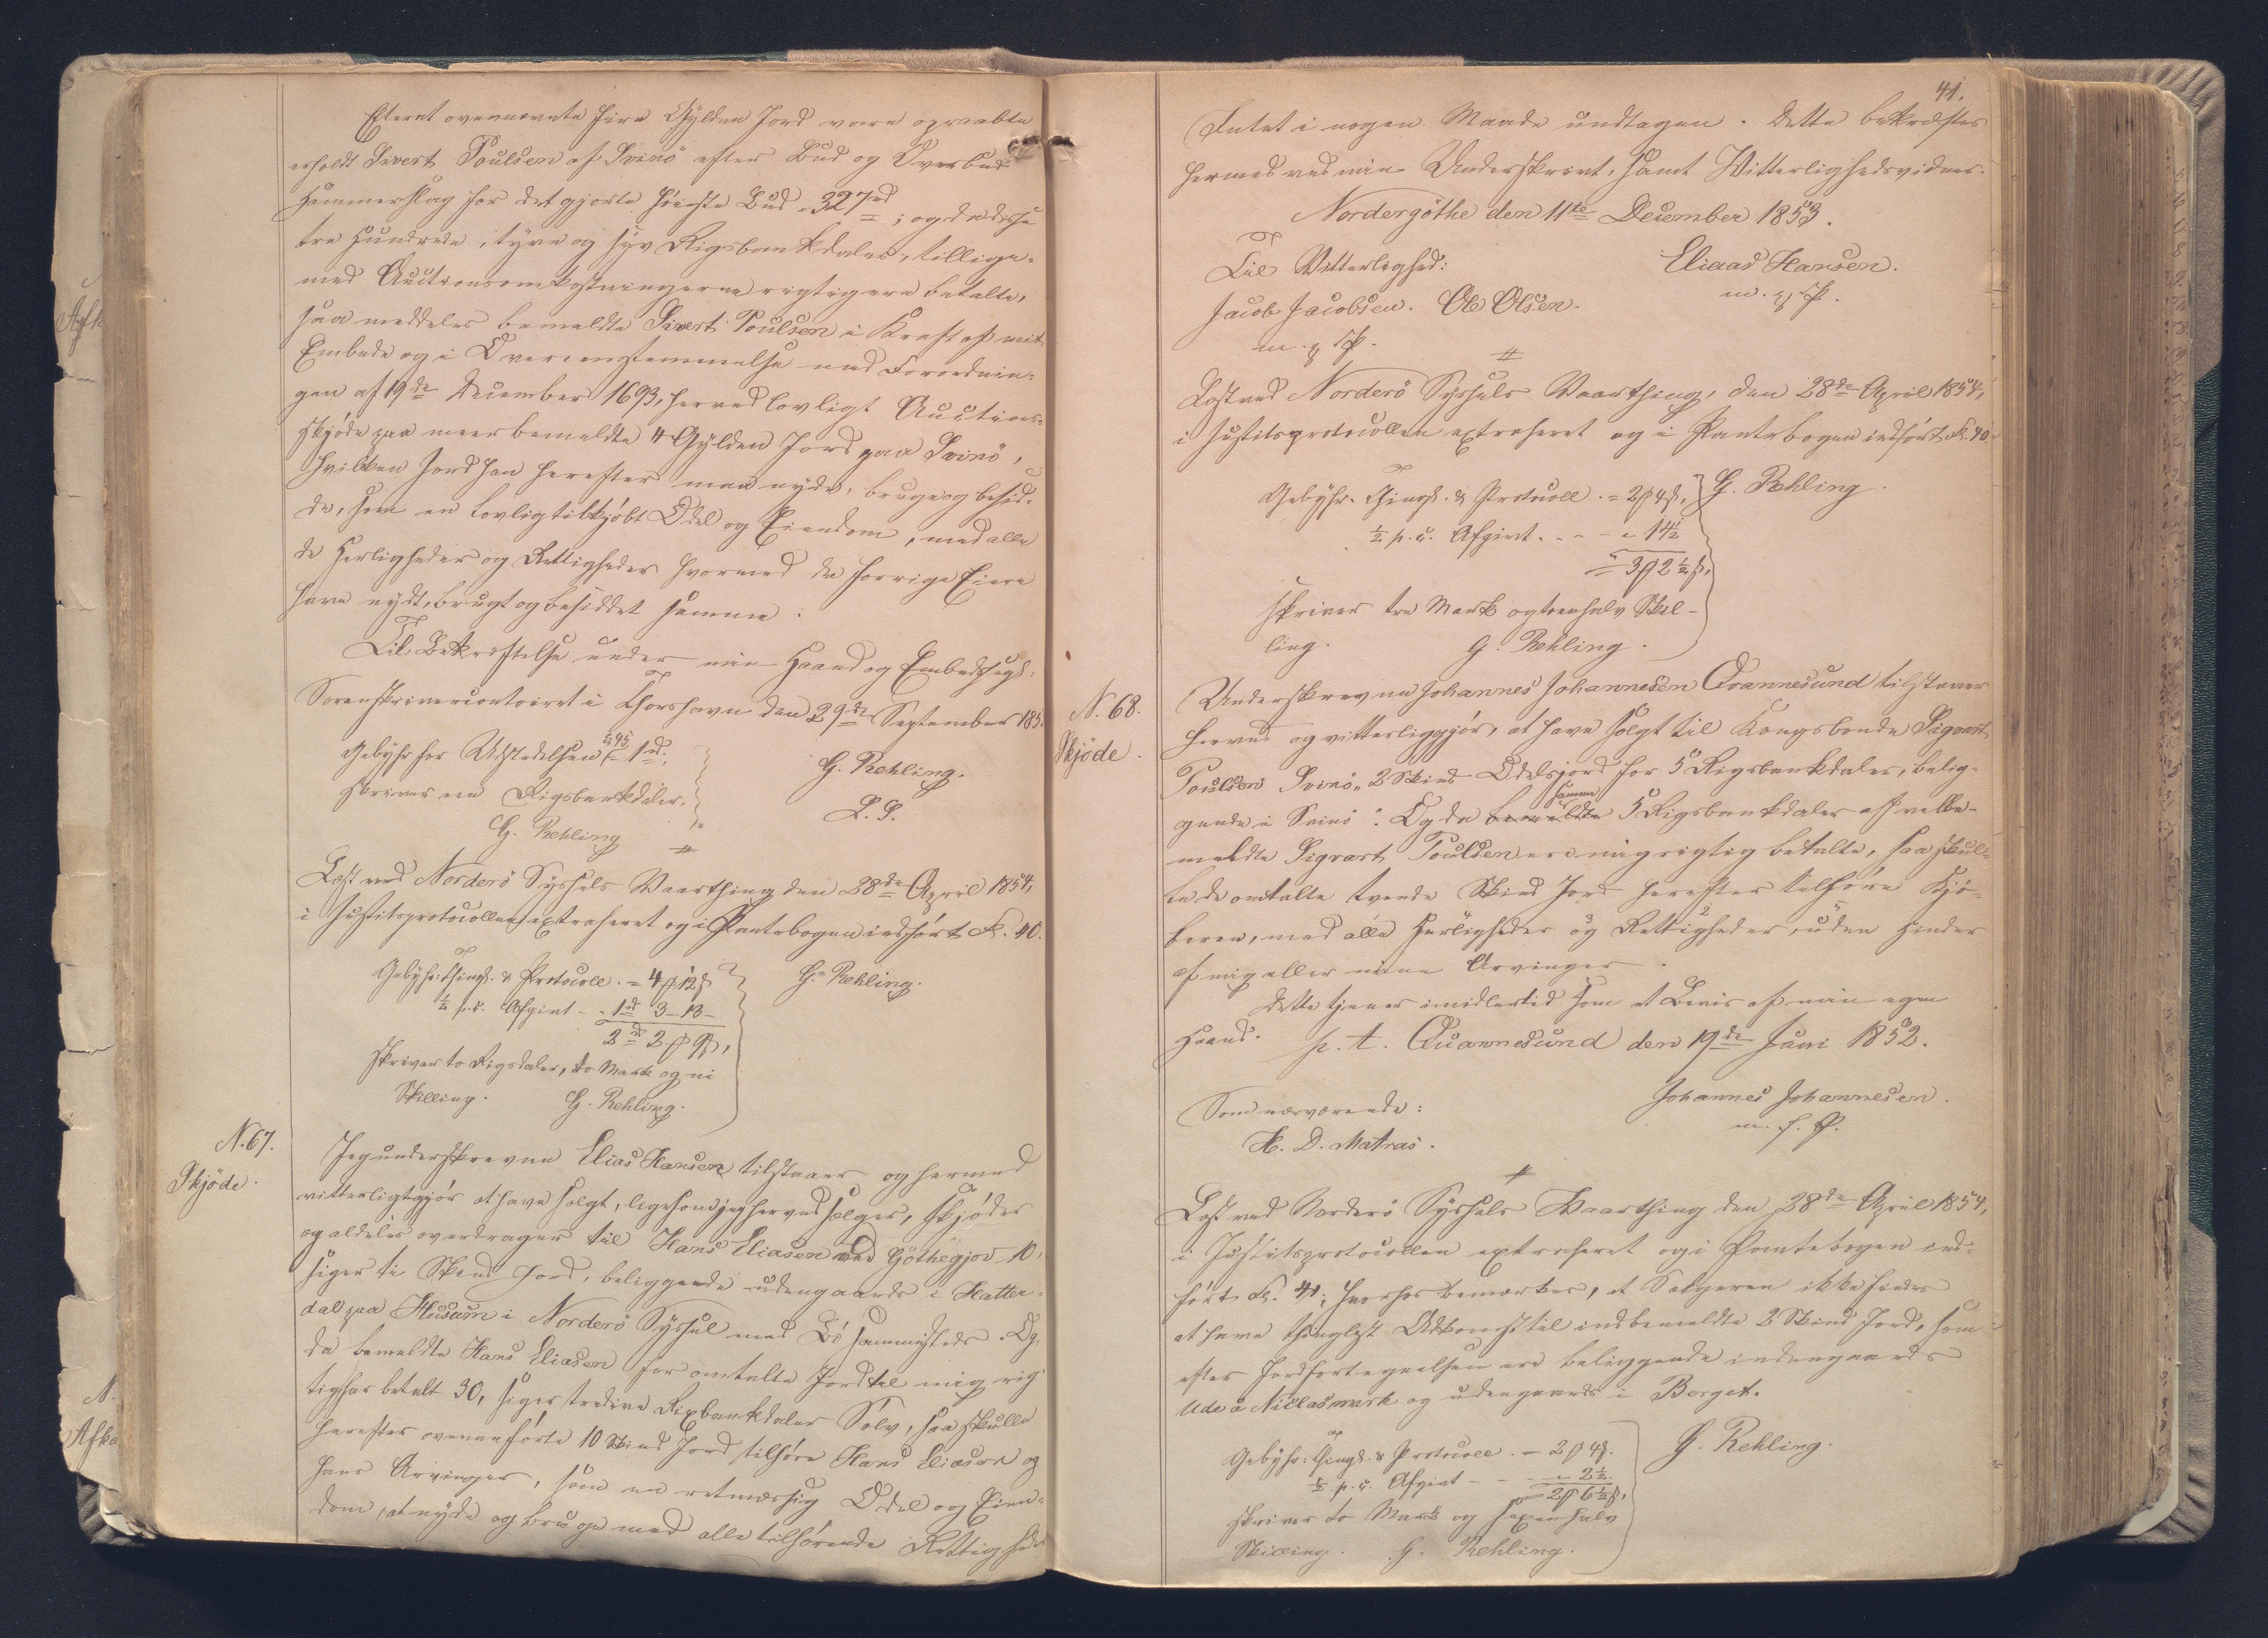 Efterat ovennævnte fire Gylden Jord vare opraabte
erholdt Sivert Poulsen af Svinö efter Bud og Overbud
Hammerslag for det gjorte höieste Bud 327 rd; og da disse
tre Hundrede, tyve og syv Rigsbankdaler, tillige-
med Auctionsomkostningerne rigtig ere betalte,
saa meddeles bemeldte Sivert Poulsen i Kraft af mit
Embede og i Overeensstemmelse med Forordnin-
gen af 19de December 1693, herved lovligt Auctions-
skjöde paa meerbemeldte 4 Gylden Jord paa Svinö,
hvilken Jord han herefter maa nyde, bruge og besid-
de, som en lovlig tilkjöbt Odel og Eiendom, med alle
de Herligheder og Rettigheder hvormed de forrige Eiere
have nydt, brugt og besiddet samme.
Til Bekræftelse under min Haand og Embedssegl.
Sorenskrivercontoiret i Thorshavn den 29de September 185
Gebyhr for Udstedelsen § 95 1rd.
skriver een Rigsbankdaler.
G. Rehling
G. Rehling.
L. S.
Læst ved Norderö Syssels Vaarthing den 28de April 1854,
i Justitsprotocollen extraheret og i Pantebogen indfört Fol. 40.
Gebyhr: Thingl. & Protocoll. = 4 ₰ 12 ß
½ p. c. Afgivt - - 1rd 3 - 13 -
2rd 2 ₰ 9 ß,
skriver to Rigsdaler, to Mark og ni
Skilling. G. Rehling.
G. Rehling.
N. 67.
Skjöde.
Jeg underskrevne Elias Hansen tilstaaer og hermed
vitterligtgjör at have solgt, ligesom jeg herved sælger, skjöder
og aldeles overdrager til Hans Eliasen ved Göthegjov 10,
siger ti Skind Jord, beliggende udengaards i Hatter-
dal paa Husum i Norderö Syssel med Bö sammesteds. Og
da bemeldte Hans Eliasen for omtalte Jord til mig rig-
tig har betalt 30, siger tredive Rixbankdaler Sölv, saa skulle
herefter ovenanförte 10 Skind Jord tilhöre Hans Eliasen og
hans Arvinger, som en retmæssig Odel og Eien-
dom, at nyde og bruge med alle tilhörende Rettigheder
41.
Intet i nogen Maade undtagen. Dette bekræftes
hermed ved min Underskrivt, samt Vitterlighedsvidner.
Nordergöthe den 11te December 1853.
Til Vitterlighed:
Eliaas Hansen.
m. f. P.
Jacob Jacobsen. Ole Olsen.
m. f. P.
Læst ved Norderö Syssels Vaarthing, den 28de April 1854,
i Justitsprotocollen extraheret og i Pantebogen indfört Fol. 40.
Gebyhr. Thingl. & Protocoll. = 2 ₰ 4 ß,
½ p. c. Afgivt. - - - " 14½
= 3 ₰ 2½ ß,
skriver tre Mark og treenhalv Skil-
ling. G. Rehling.
G. Rehling.
N. 68.
Skjöde.
Underskrevne Johannes Johannesen Qvannesund tilstaaer
herved og vitterliggjör, at have solgt til Kongsbonde Sigvart
Poulsen Svinö, 2 Skind Odelsjord for 5 Rigsbankdaler, belig-
gende i Svinö. Og da bemeldte samme 5 Rigsbankdaler af velbe-
meldte Sigvart Poulsen ere mig rigtig betalte, saa skul-
le de omtalte tvende Skind Jord herefter tilhöre Kjö-
beren, med alle Herligheder og Rettigheder, uden Hinder
af mig eller mine Arvinger.
Dette tjener imidlertid som et Bevis af min egen
Haand. p. t. Quannesund den 19de Juni 1852.
Som nærværende:
Johannes Johannesen.
m. f. P.
H. D. Matras.
Læst ved Norderö Syssels Vaarthing den 28de April 1854,
i Justitsprotocollen extraheret og i Pantebogen ind-
fört Fol. 41; hvorhos bemærkes, at Sælgeren ikke findes
at have thinglyst Adkomst til indbemeldte 2 Skind Jord, som
efter Jordfortegnelsen ere beliggende indengaards
Ude a Niclasmark og udengaards i Borget.
Gebyhr: Thingl. & Protocoll. - 2 ₰ 4 ß.
½ p. c. Afgivt - - - " 2½.
= 2 ₰ 6½ ß,
skriver to Mark og sexenhalv
Skilling. G. Rehling.
G. Rehling.